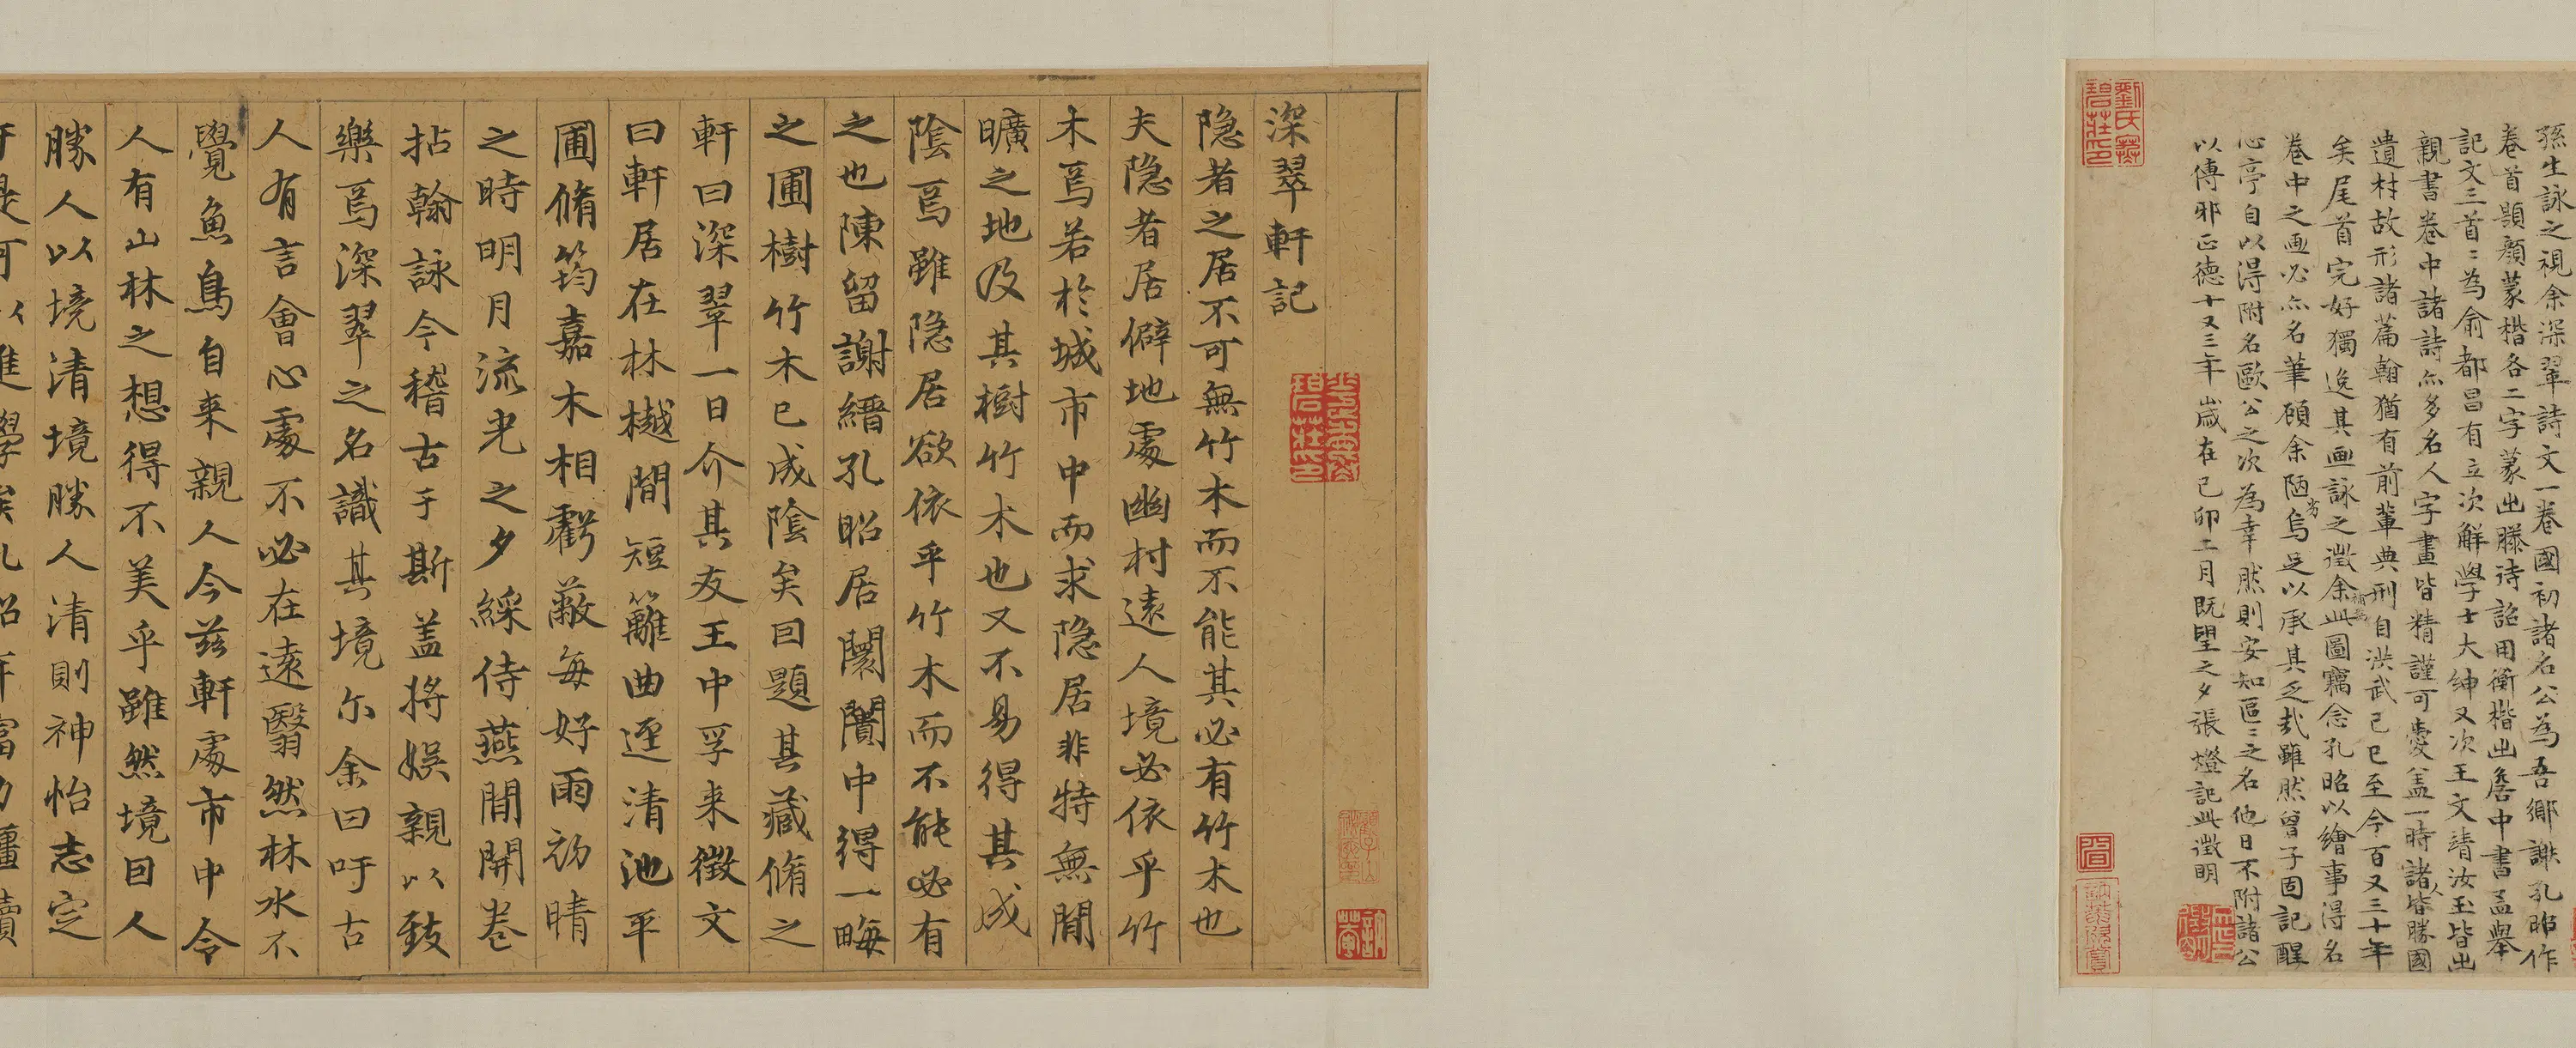 孫生詠之視余深翠詩文一卷國初諸名公為吾鄉謝孔昭作
卷首題顏蒙楷各二字蒙出滕待詔用衡楷出詹中書孟舉
記文三首〻為俞都昌有立次解學士大紳又次王文靖汝玉皆出
親書卷中諸詩亦多名人字畫皆精謹可愛盖一時諸人皆勝國
遺材故形諸篇翰猶有前輩典刑自洪武己巳至今百又三十年
矣尾首完好獨逸其画詠之徵余補為此圖竊念孔昭以繪事得名
卷中之画必亦名筆顧余陋劣烏足以承其乏哉雖然曾子固記醒
心亭自以得附名歐公之次為幸然則安知區〻之名他日不附諸公
以傳邪正德十又三年歲在己卯二月既望之夕張燈記此徵明
深翠軒記
隐者之居不可無竹木而不能其必有竹木也
夫隐者居僻地處幽村遠人境必依乎竹
木焉若於城市中而求隐居非特無閒
曠之地及其樹竹木也又不易得其成
陰焉雖隐居欲依乎竹木而不能必有
之也陳留謝縉孔昭居闤闠中得一畮
之圃樹竹木已成陰矣囙題其藏脩之
軒曰深翠一日介其友王中孚来徵文
曰軒居在林樾間短籬曲逕清池平
圃脩筠嘉木相虧蔽每好雨初晴
之時明月流光之夕綵侍燕閒開卷
拈翰詠今稽古于斯盖将娱親以致
樂焉深翠之名識其境尓余曰吁古
人有言會心處不必在遠翳然林水不
覺魚鳥自来親人今兹軒處市中令
人有山林之想得不美乎雖然境囙人
勝人以境清境勝人清則神怡志定